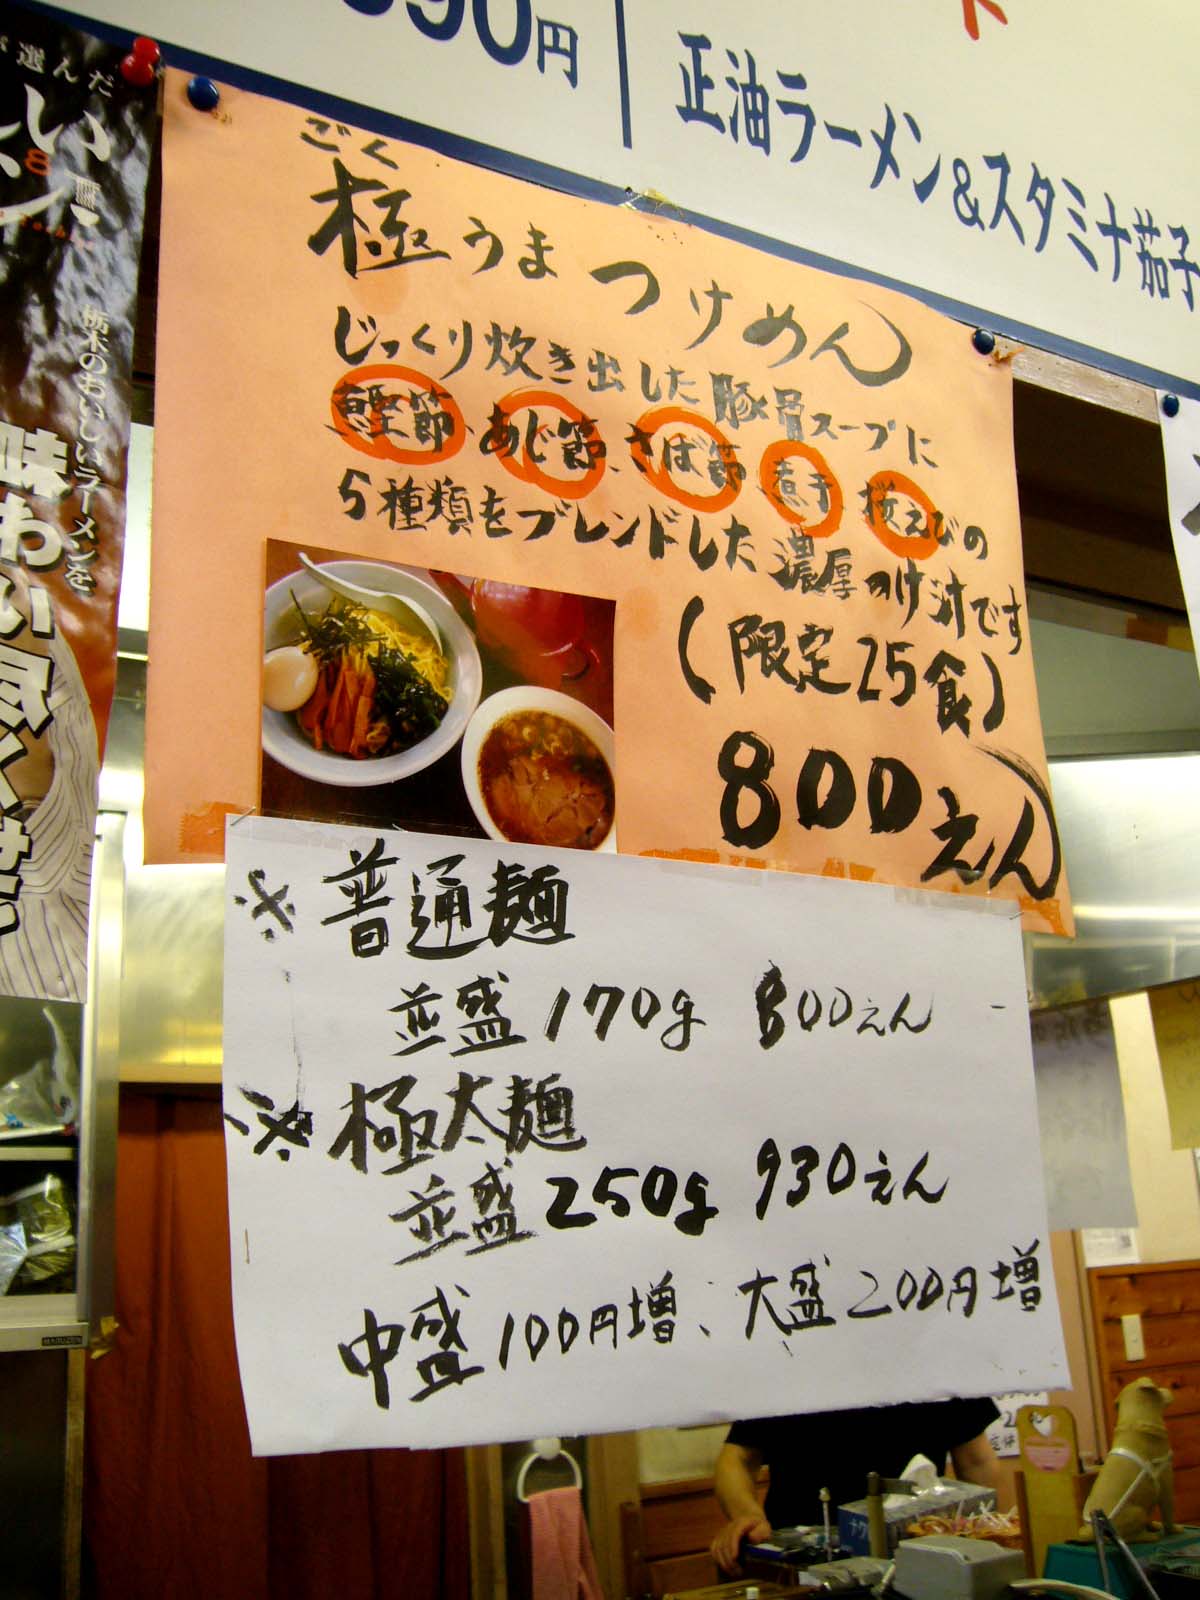 90円
正油ラーメン&スタミナ茄子
選んだ
栃木のおいしいラーメンを
味わい尽くせ。
ごく
極うまつけめん
じっくり炊き出した豚骨スープに
鰹節、あじ節、さば節、煮干、桜えびの
5種類をブレンドした濃厚つけ汁です
(限定25食)
800えん
※普通麺
並盛170g 800えん
※極太麺
並盛250g 930えん
中盛100円増、大盛200円増